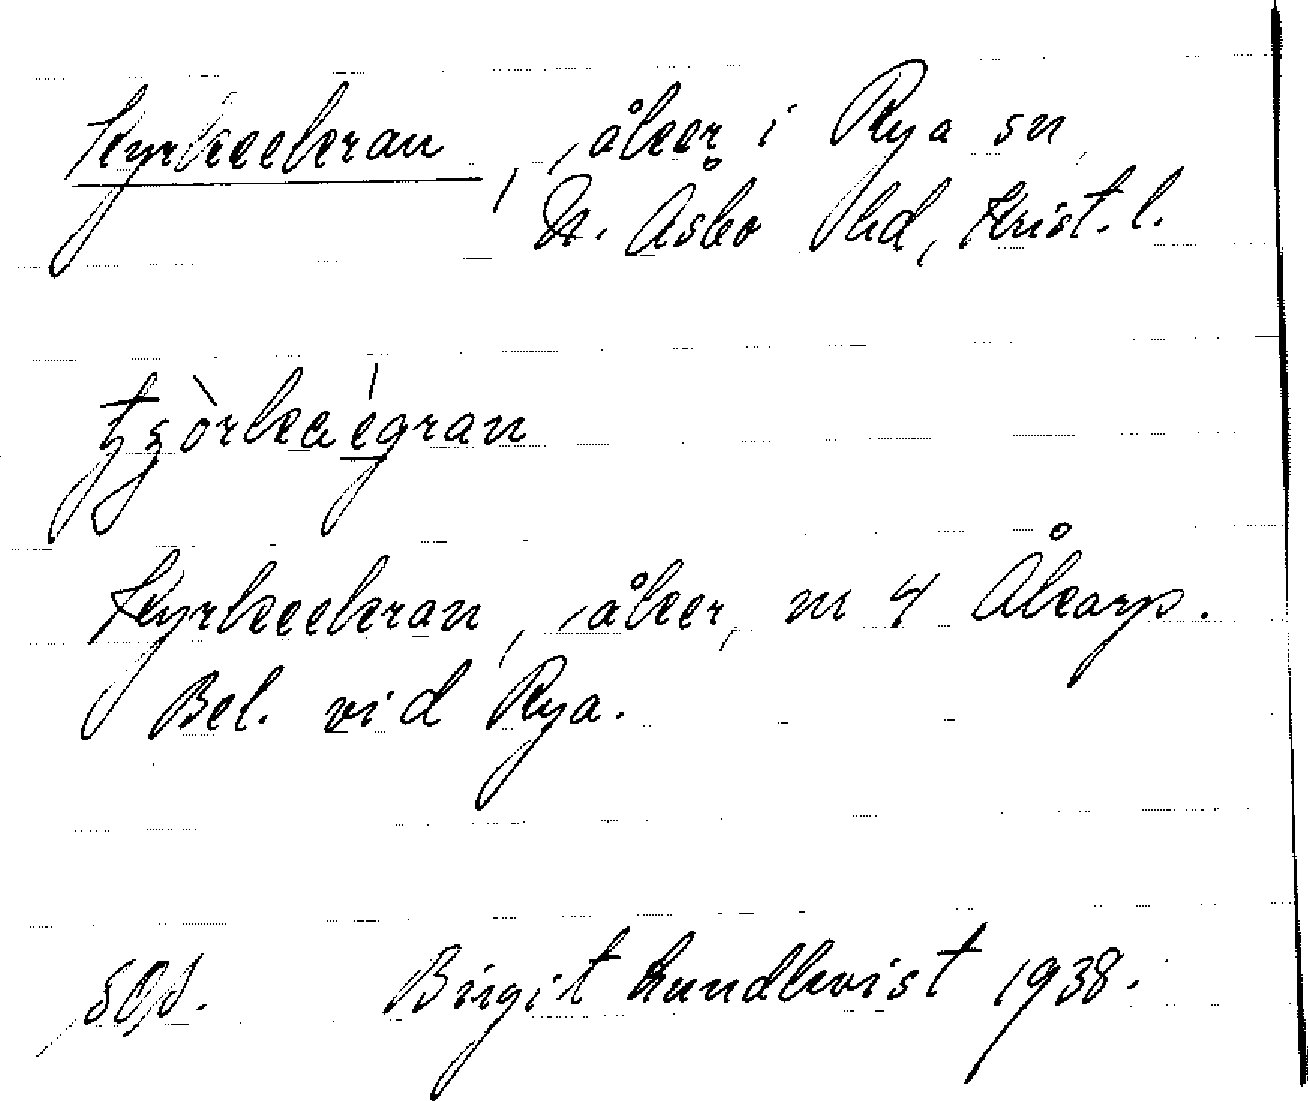 Kyrkeekran, åker i Rya sn
N. Åsbo hd, Krist. l.
Kyrkeekran, åker, nr 4 Åkarp.
Bel. vid Rya.
Birgit Lundkvist 1938.